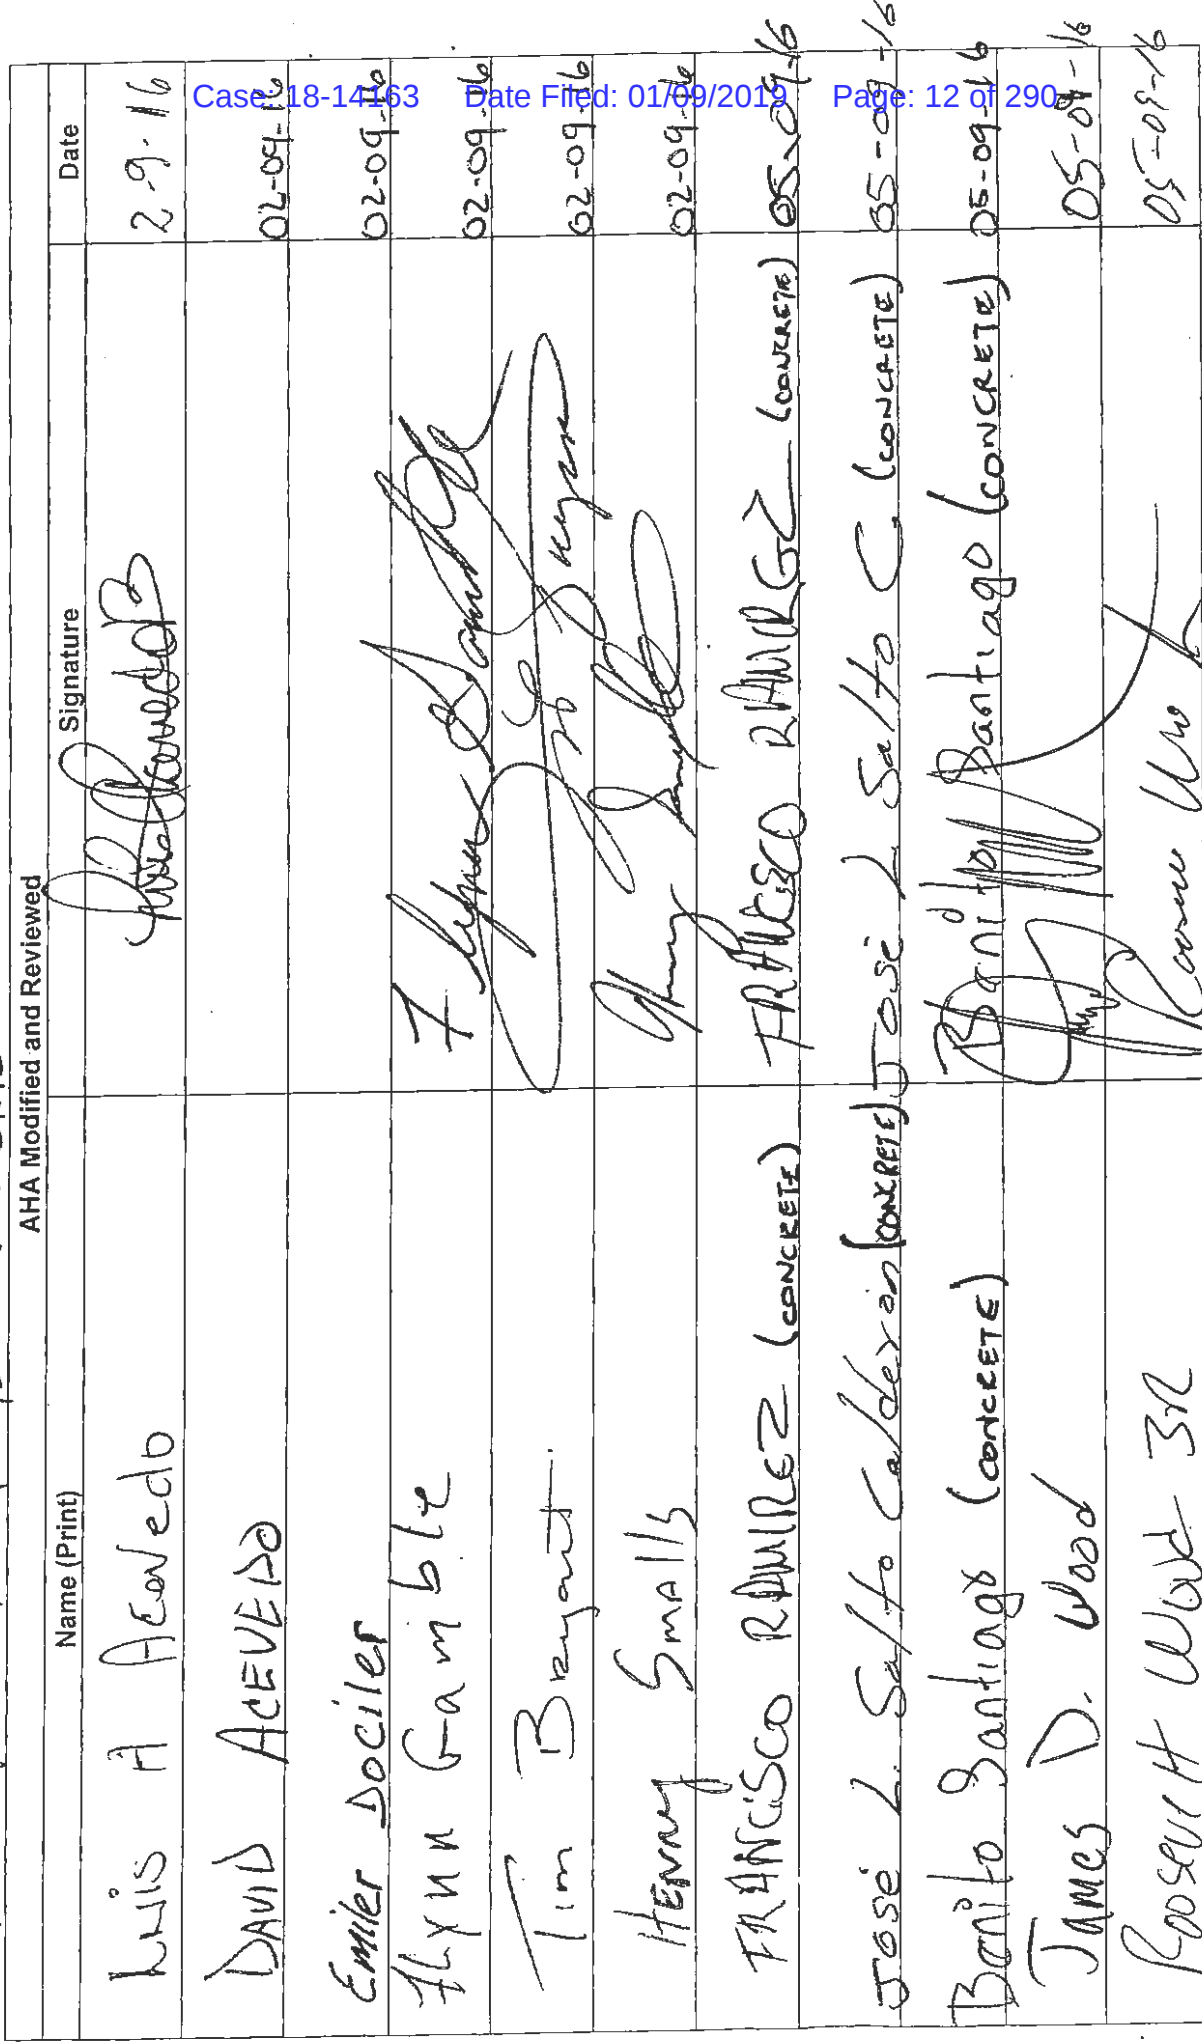 Case: 18-14163 Date Filed: 01/09/2019 Page: 12 of 290
AHA Modified and Reviewed
Name (Print) Signature Date
Luis A Acevedo 2-9-116
DAVID ACEVEDO 02-09-16
Emiler Dociler 02-09-16
Flynn Gamble Flynn Gamble 02-09-16
Tim Bryant 02-09-16
HENRY SmAlls Henry Smalls 02-09-16
FRANCISCO RAMIREZ (CONCRETE) FRANCISCO RAMIREZ (CONCRETE) 05-09-16
José L. Salto Calderon (CONCRETE) José L Salto C. (CONCRETE) 05-09-16
Benito Santiago (CONCRETE) Benito Santiago (CONCRETE) 05-09-16
JAMES D. Wood 05-09-16
Roosevelt Wood 3R 05-09-16